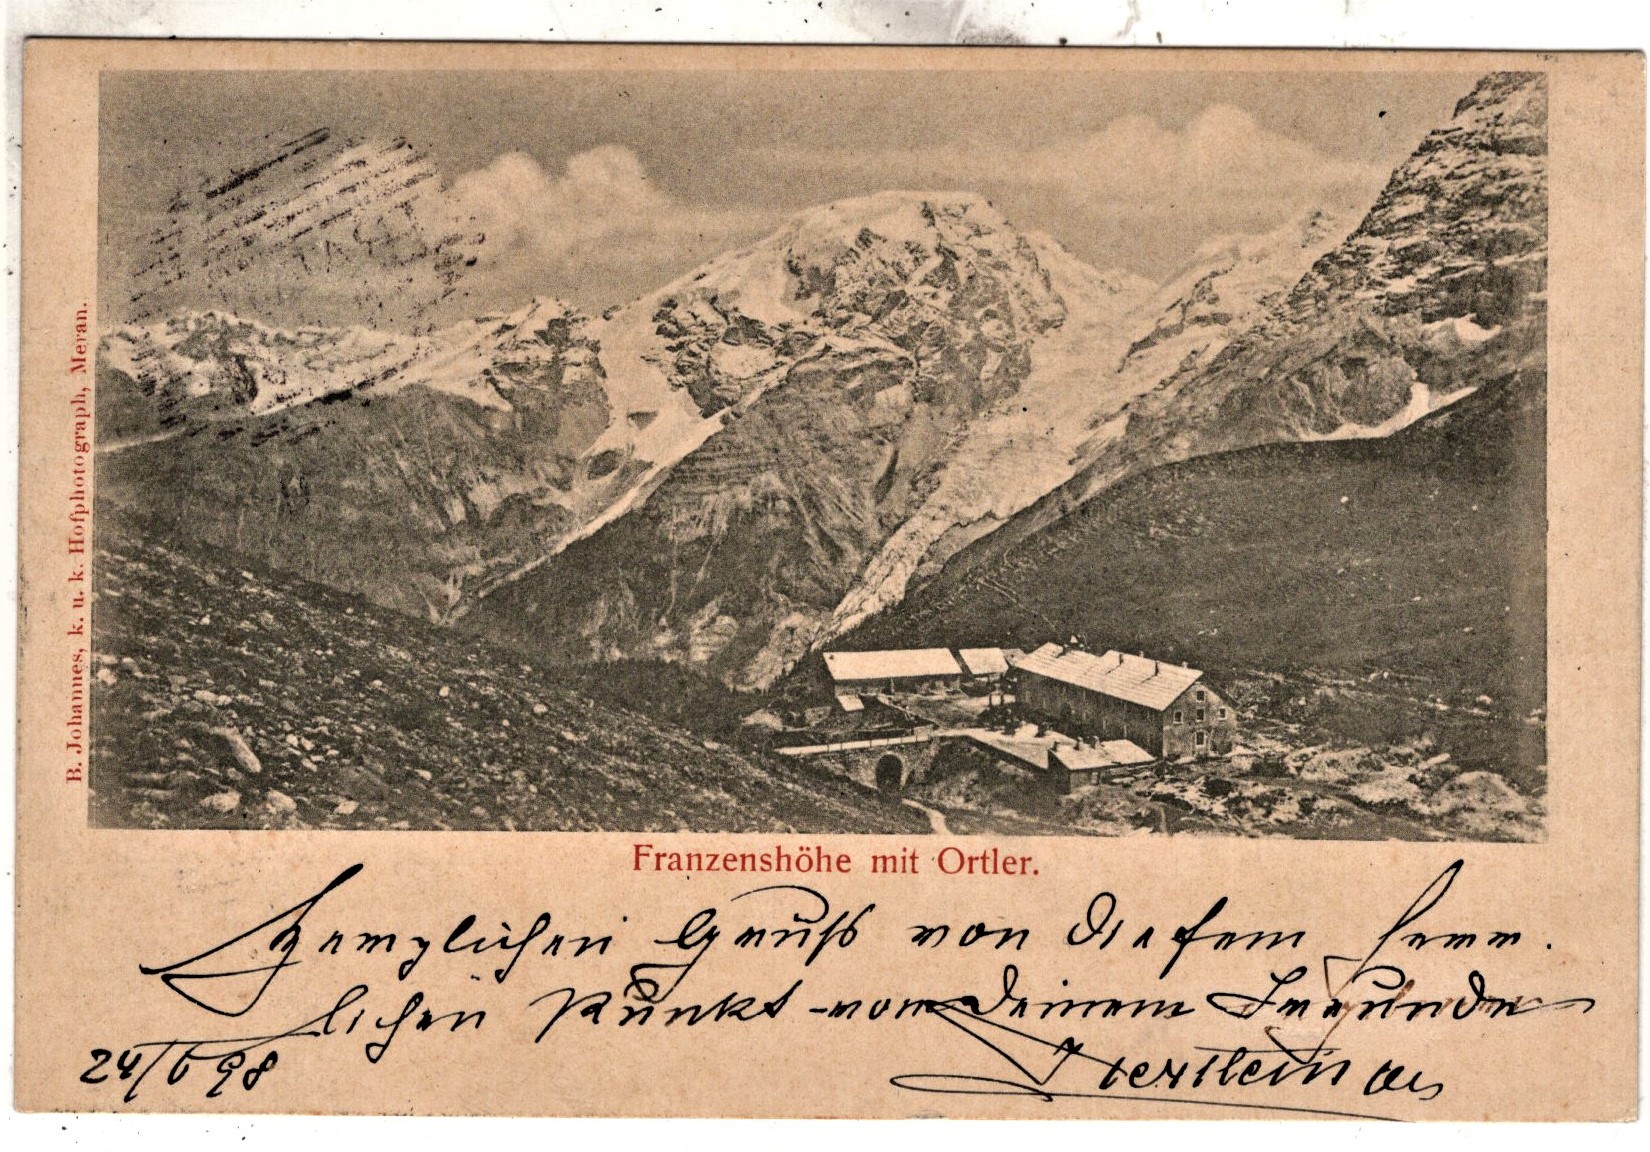 B. Johannes, k. u. k. Hofphotograph, Meran.
Franzenshöhe mit Ortler.
Herzlichen Gruß von diesem herr-
lichen Punkt von Deinem Freunde
24/6 98